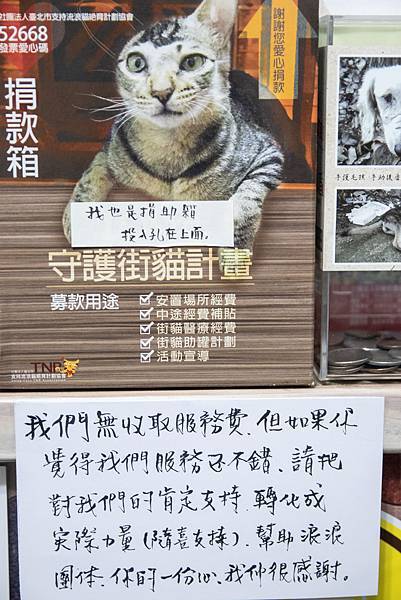 社團法人臺北市支持流浪貓絕育計劃協會
52668
發票愛心碼
謝謝您愛心捐款
捐款箱
我也是捐助箱
投入孔在上面。
守護街貓計畫
募款用途
安置場所經費
中途經費補貼
街貓醫療經費
街貓助罐計劃
活動宣導
TNR
支持流浪貓絕育計劃協會
我們無收取服務費,但如果你
覺得我們服務还不錯、請把
對我們的肯定支持、轉化成
实際力量(隨喜支援)、幫助浪浪
團体、你的一份心、我们很感謝。